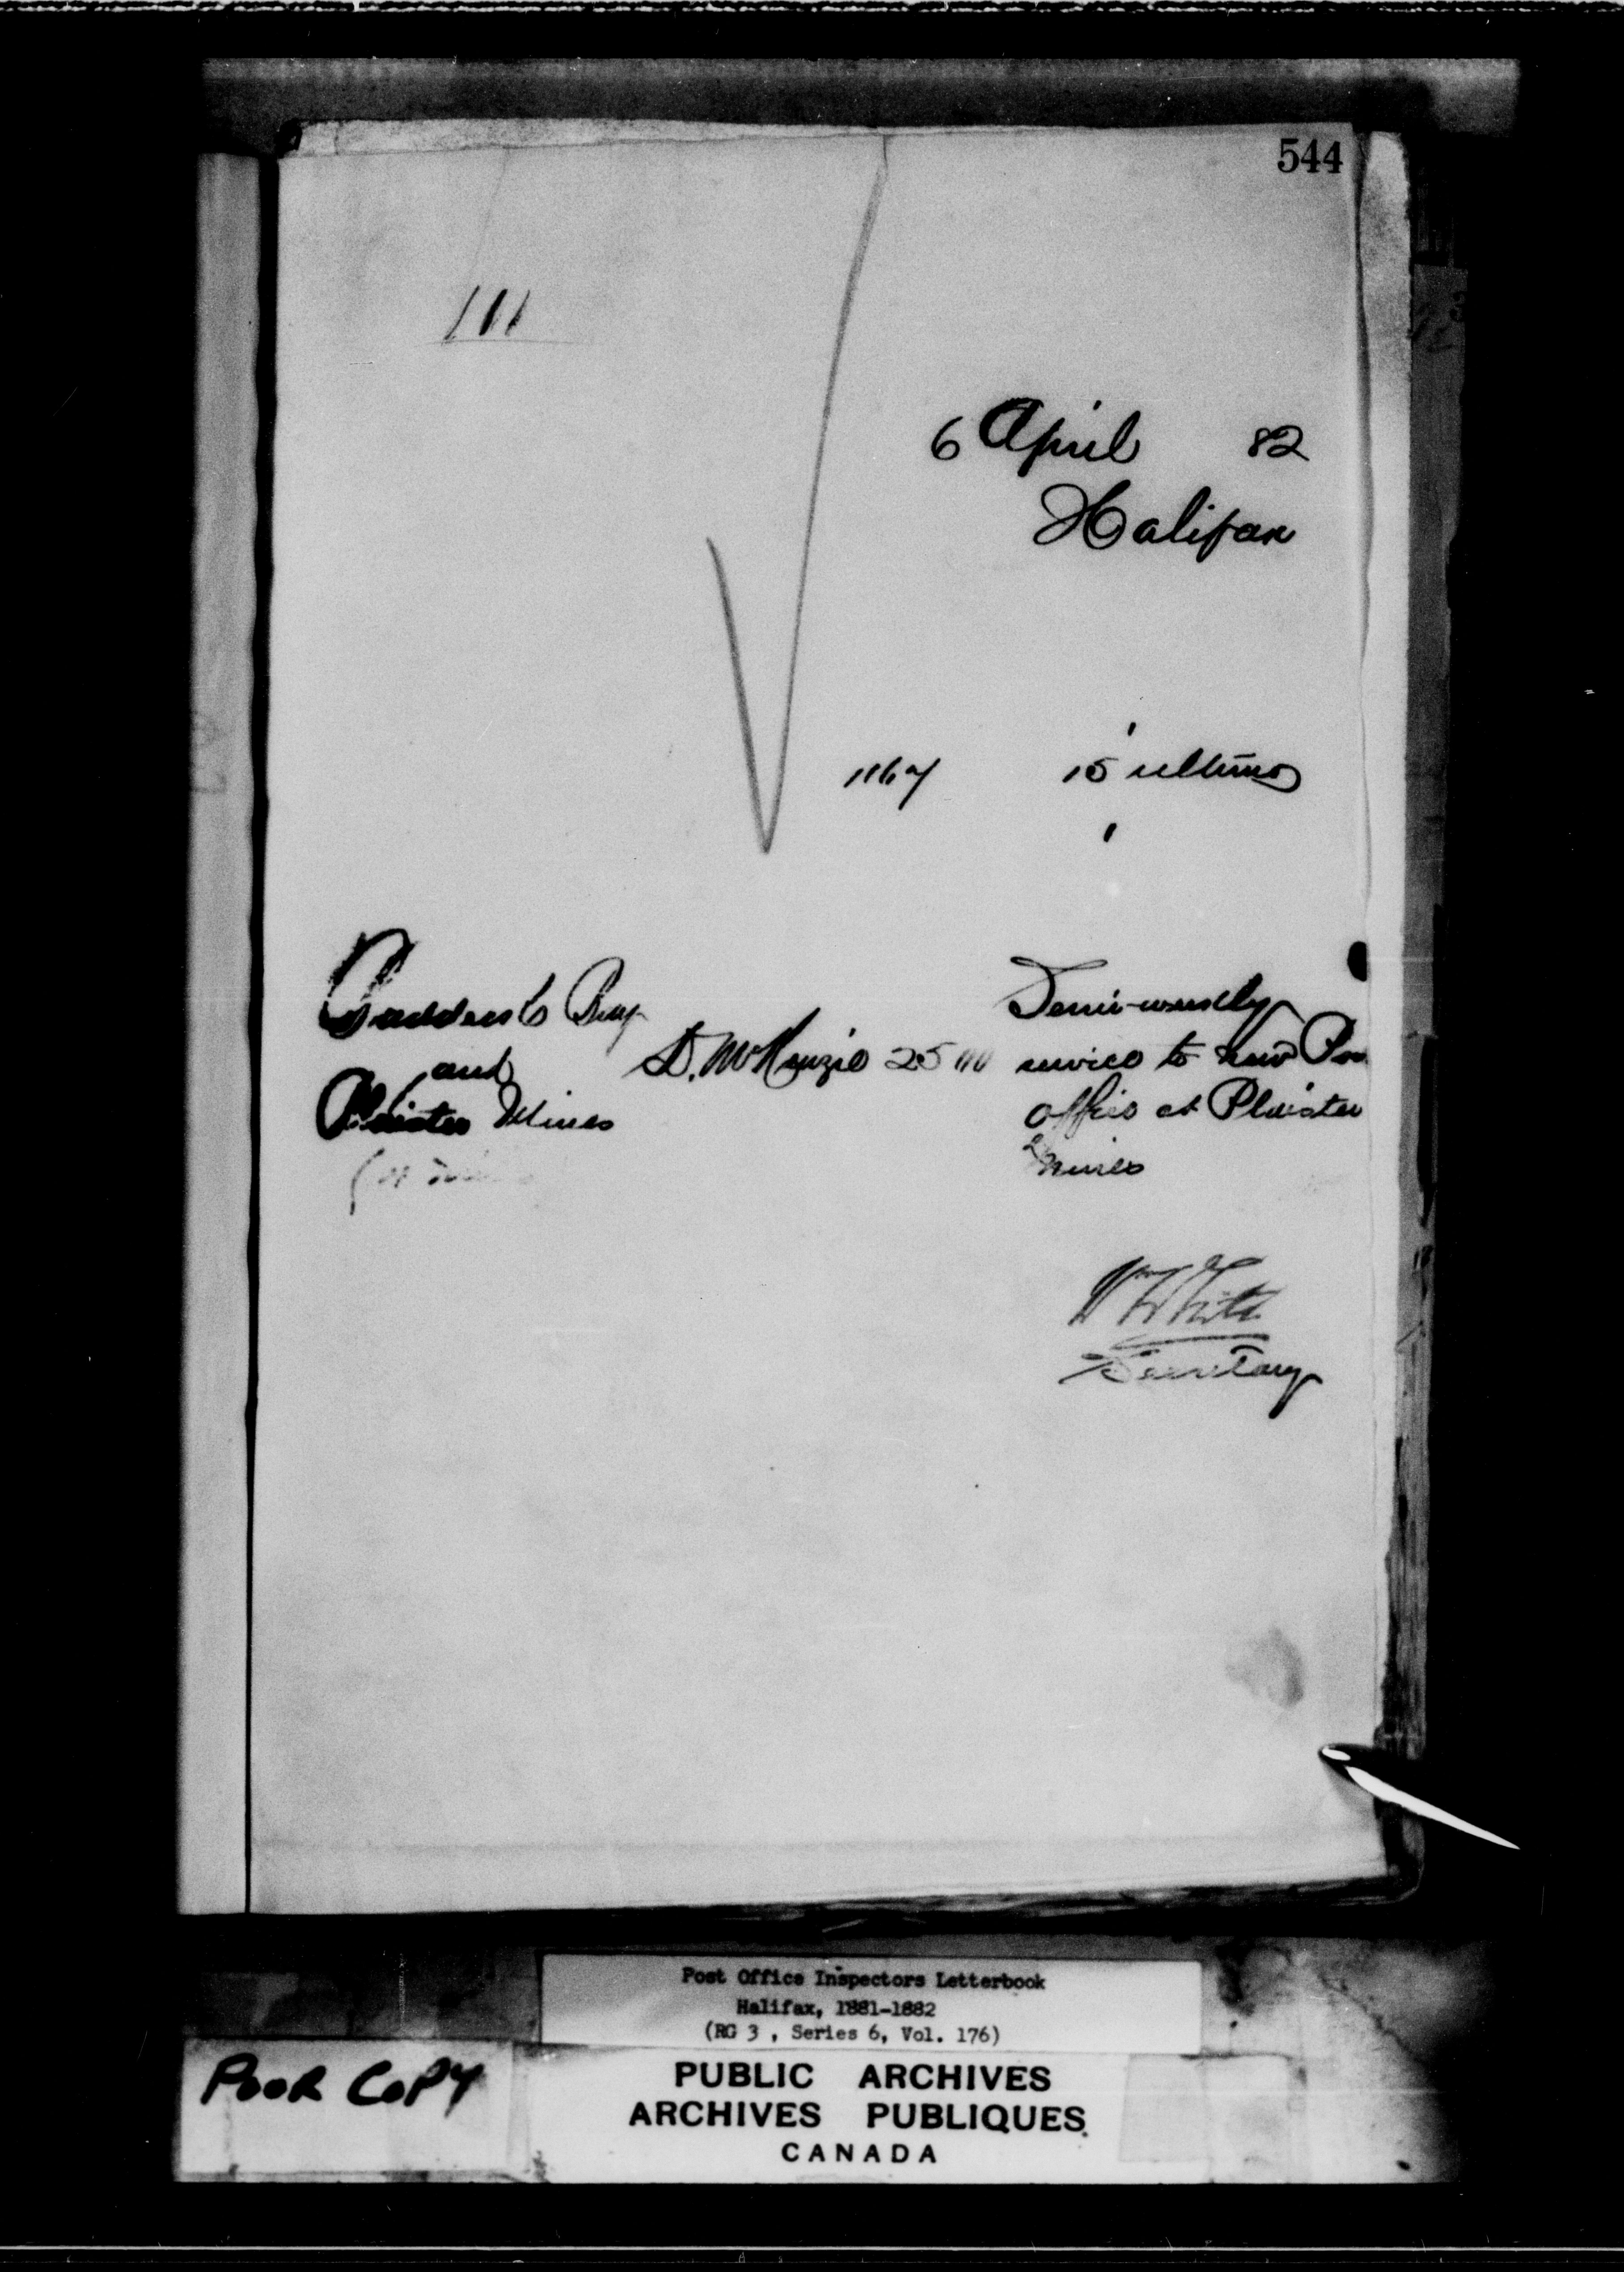 544
111
6 April 82
Halifax
1167 15 ultimo
Baddeck Bay
and
Plaister Mines
D. McKenzie 25 00
Semi-weekly
service to new Pos
office at Plaister
Mines
Wm White
Secretary
Post Office Inspectors Letterbook
Halifax, 1881-1882
(RG 3 , Series 6, Vol. 176)
POOR COPY
PUBLIC ARCHIVES
ARCHIVES PUBLIQUES
CANADA